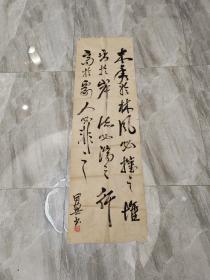 木秀於林風必摧之堆
出於岸流必湍之行
高於眾人必非之